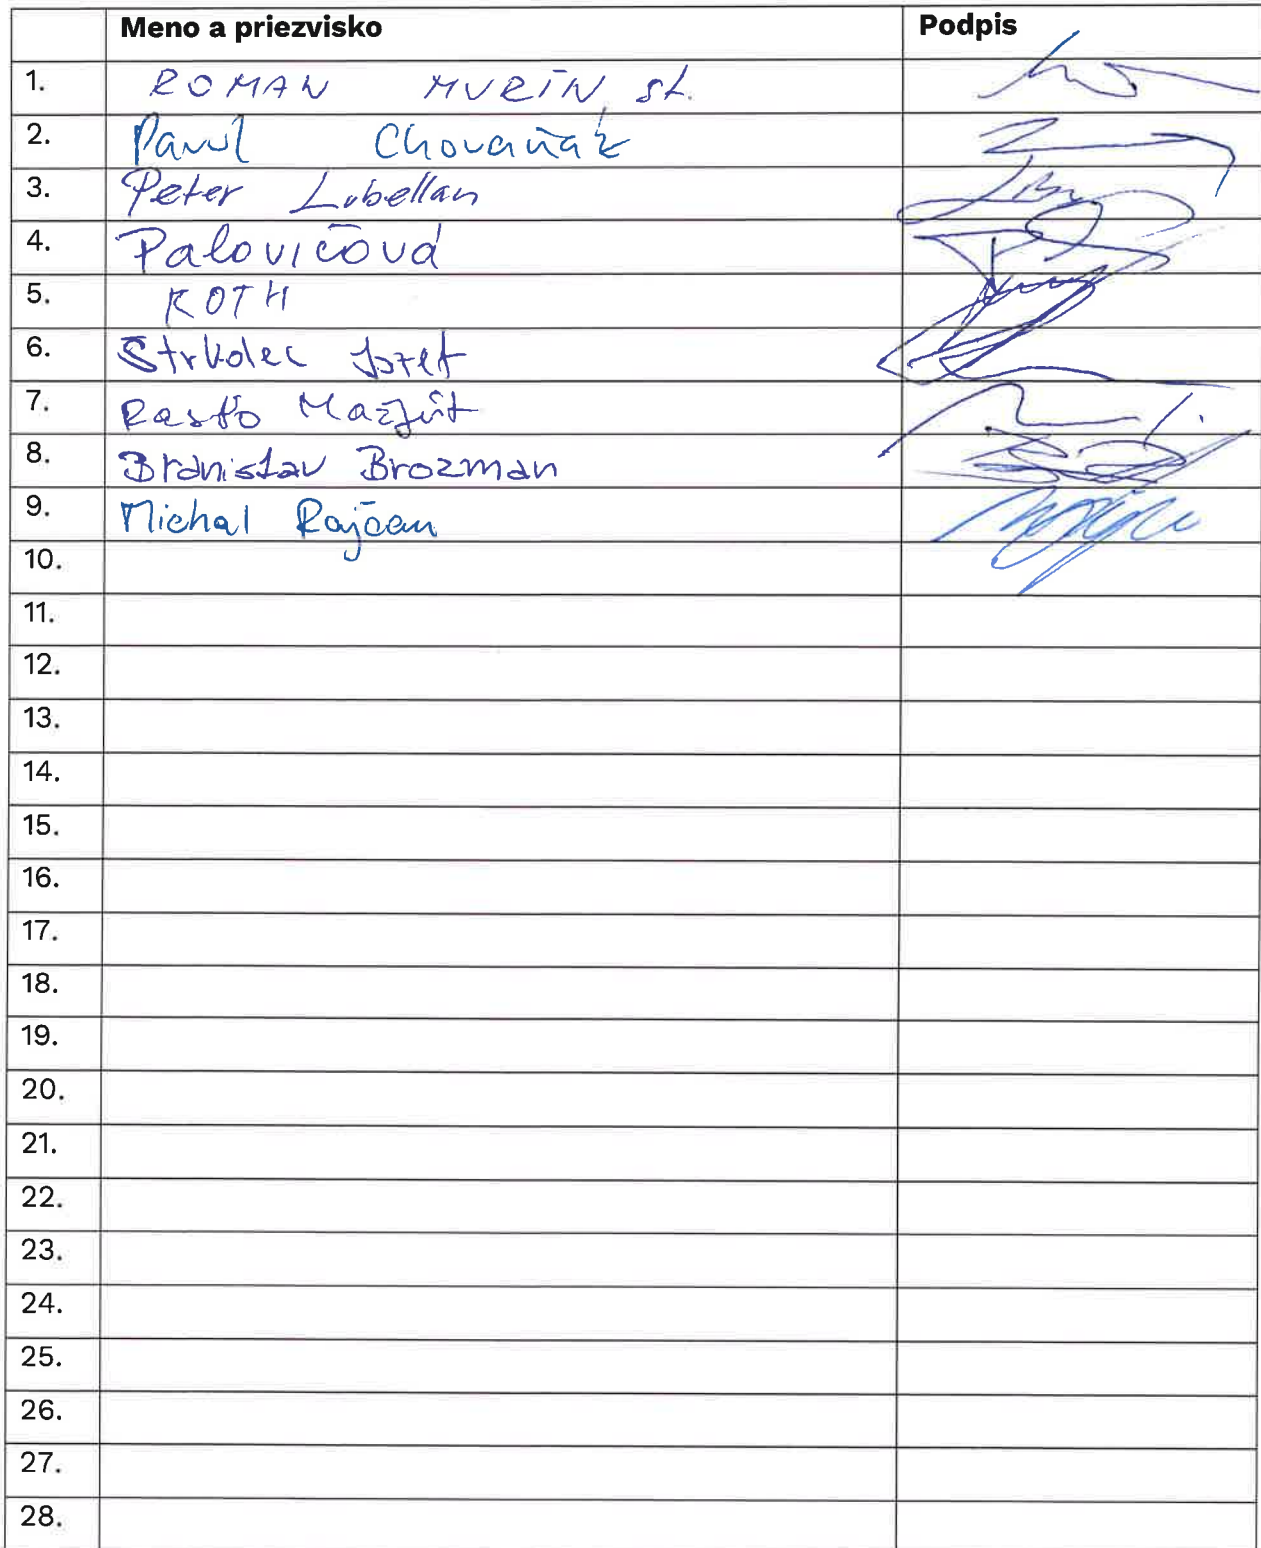 Meno a priezvisko Podpis
1. ROMAN MURÍN, st.
2. Pavol Chovaňák
3. Peter Lubellan
4. Palovičová
5. KOTH
6. Strkolec Jozef
7. Rasťo Mazút
8. Branislav Brozman
9. Michal Rajčan
10.
11.
12.
13.
14.
15.
16.
17.
18.
19.
20.
21.
22.
23.
24.
25.
26.
27.
28.